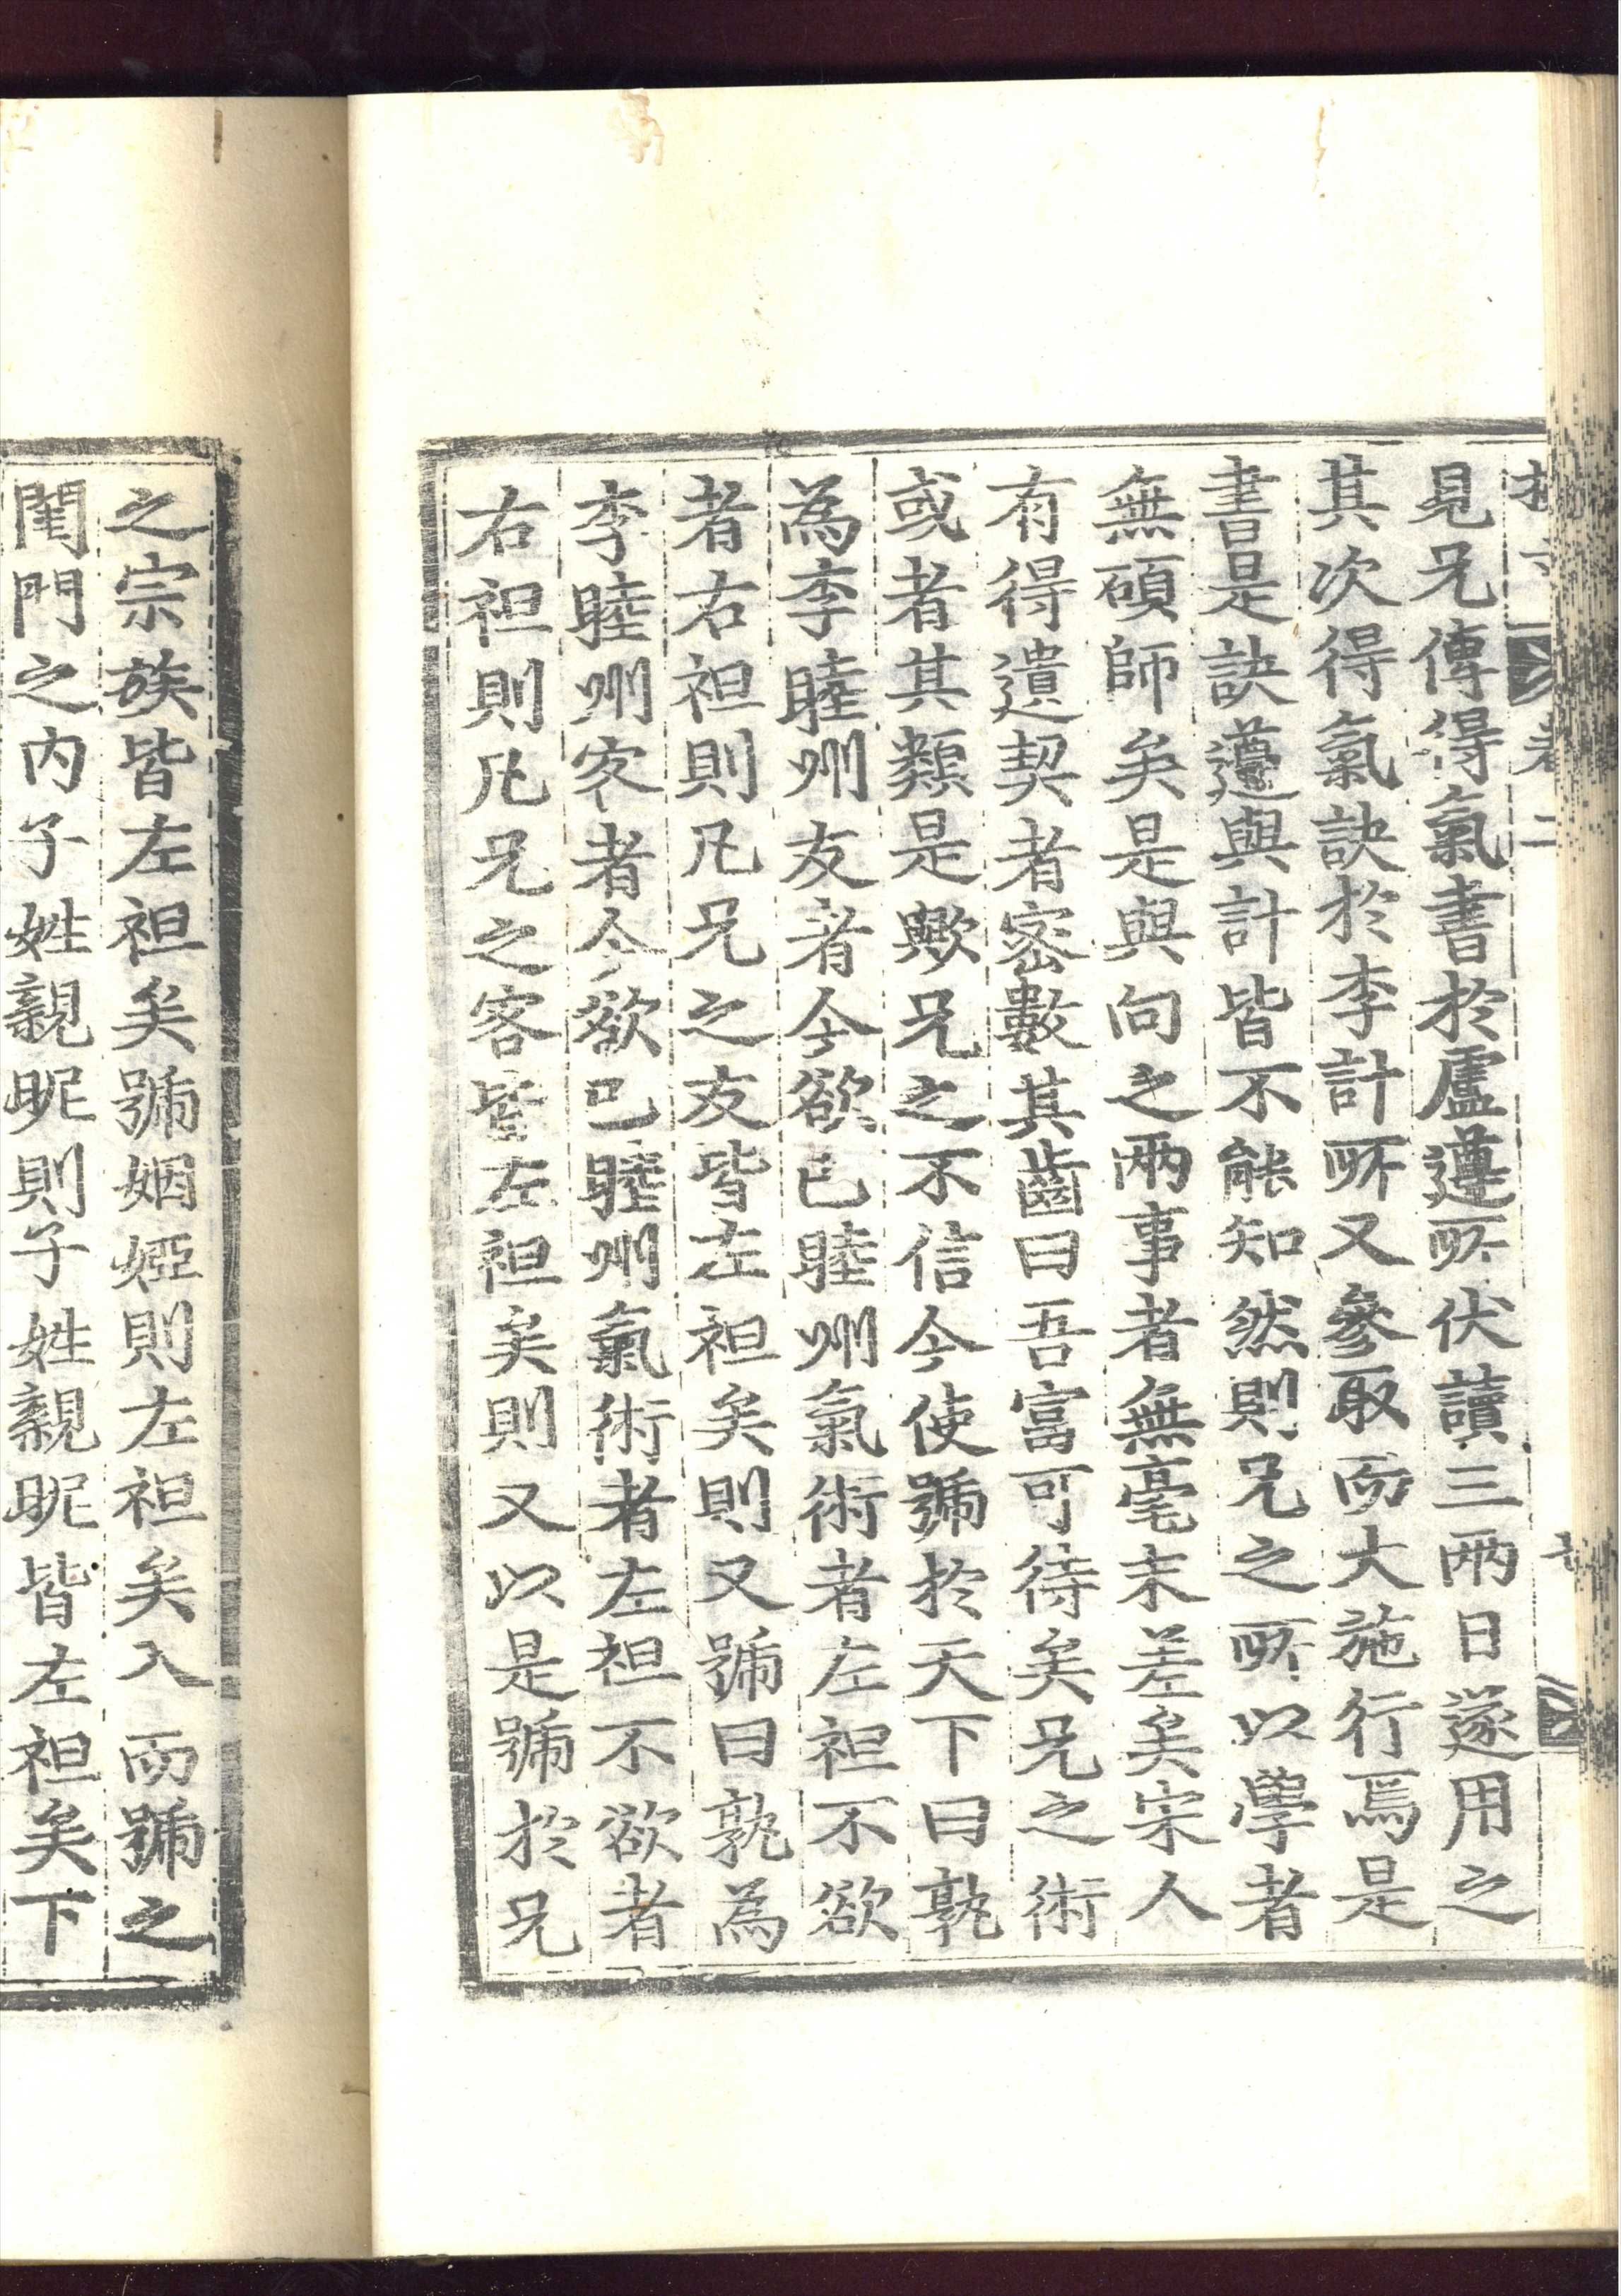 見兄傳得氣書於盧遵所伏讀三兩日遂用之
其次得氣訣於李計所又參取而大施行焉是
書是訣遵與計皆不能知然則兄之所以學者
無碩師矣是與向之兩事者無毫末差矣宋人
有得遺契者密數其齒曰吾富可待矣兄之術
或者其類是歟兄之不信今使號於天下曰孰
為李睦州友者今欲已睦州氣術者左袒不欲
者右袒則凡兄之友皆左袒矣則又號曰孰為
李睦州客者今欲已睦州氣術者左袒不欲者
右袒則凡兄之客皆左袒矣則又以是號於兄
之宗族皆左袒矣號姻婭則左袒矣入而號之
閨門之內子姓親昵則子姓親昵皆左袒矣下